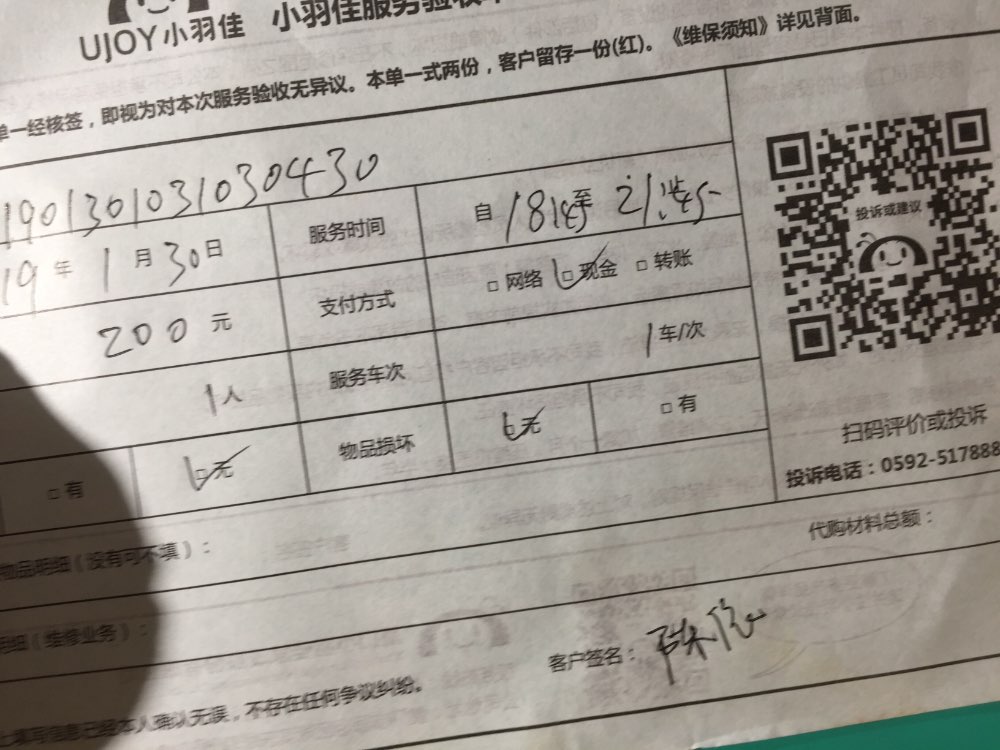 UJOY小羽佳 小羽佳服务验收
单一经核签，即视为对本次服务验收无异议。本单一式两份，客户留存一份(红)。《维保须知》详见背面。
1901301031030430
19 年 1 月 30 日 服务时间 自 18:45 至 21:45
200 元 支付方式 □ 网络 □ 现金 □ 转账
1 人 服务车次 1 车/次
□ 有 □ 无 物品损坏 无 □ 有
投诉或建议
扫码评价或投诉
投诉电话：0592-517888
物品明细（没有可不填）： 代购材料总额：
明细（维修业务）：
客户签名：
上填写信息已经本人确认无误，不存在任何争议纠纷。